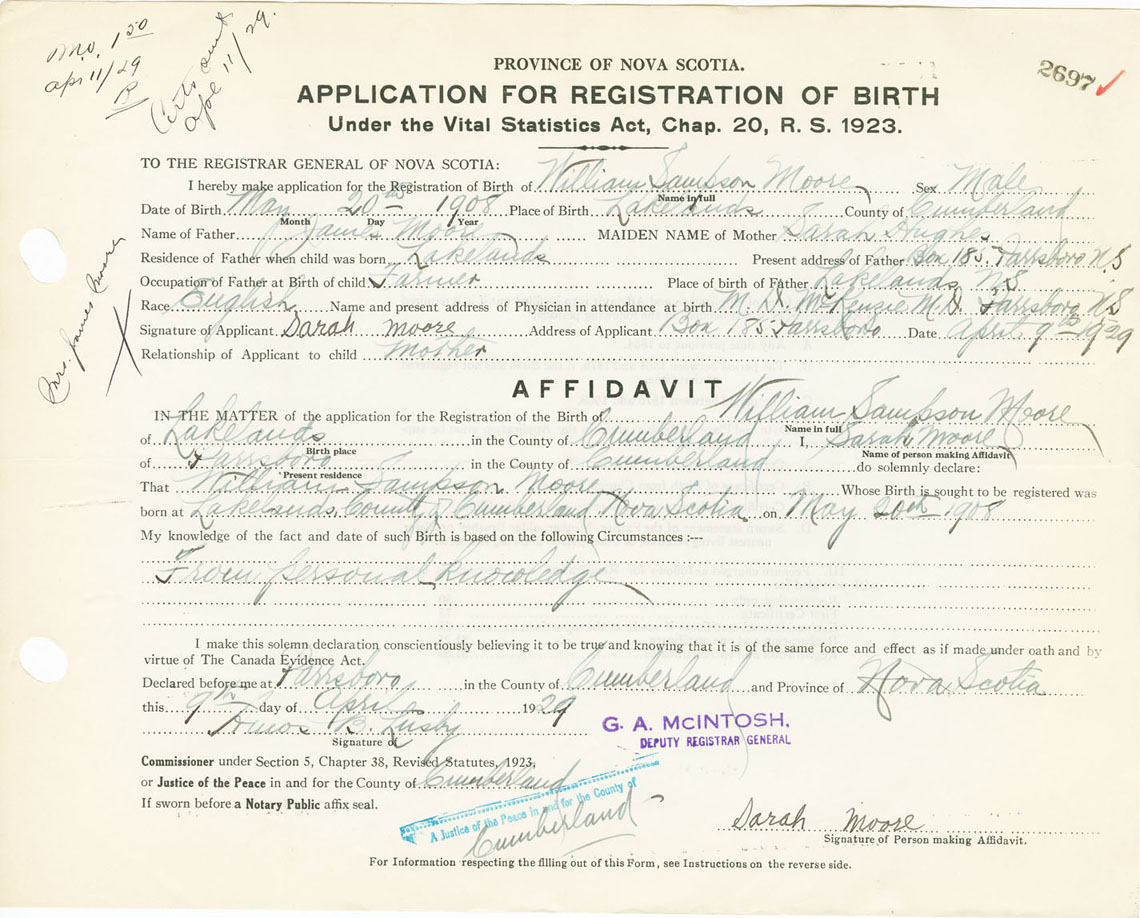 M.O. 1 50
Apr 11/29
R
Certs sent
Apl 11/29.
2697
PROVINCE OF NOVA SCOTIA.
APPLICATION FOR REGISTRATION OF BIRTH
Under the Vital Statistics Act, Chap. 20, R. S. 1923.
TO THE REGISTRAR GENERAL OF NOVA SCOTIA:
I hereby make application for the Registration of Birth of William Sampson Moore Sex Male
Name in full
Date of Birth May 20th 1908 Place of Birth Lakelands County of Cumberland
Month Day Year
Name of Father James Moore MAIDEN NAME of Mother Sarah Hughes
Residence of Father when child was born Lakelands Present address of Father Box 185. Parrsboro N.S
Occupation of Father at Birth of child Farmer Place of birth of Father Lakelands N.S
Race English Name and present address of Physician in attendance at birth M. D. McKenzie M.D Parrsboro N.S
Signature of Applicant Sarah Moore Address of Applicant Box 185 Parrsboro Date April 9th 1929
Relationship of Applicant to child Mother
Mrs. James Moore
X
AFFIDAVIT
IN THE MATTER of the application for the Registration of the Birth of William Sampson Moore
Name in full
of Lakelands in the County of Cumberland I, Sarah Moore
Birth place Name of person making Affidavit
of Parrsboro in the County of Cumberland do solemnly declare:
Present residence
That William Sampson Moore Whose Birth is sought to be registered was
born at Lakelands County of Cumberland Nova Scotia on May 20th 1908
My knowledge of the fact and date of such Birth is based on the following Circumstances :---
From personal knowledge
I make this solemn declaration conscientiously believing it to be true and knowing that it is of the same force and effect as if made under oath and by
virtue of The Canada Evidence Act.
Declared before me at Parrsboro in the County of Cumberland and Province of Nova Scotia
this 9th day of April 1929
Amos B. Lusby
Signature of
G. A. McINTOSH,
DEPUTY REGISTRAR GENERAL
Commissioner under Section 5, Chapter 38, Revised Statutes, 1923,
or Justice of the Peace in and for the County of Cumberland
If sworn before a Notary Public affix seal.
A Justice of the Peace in and for the County of
Cumberland
Sarah Moore
Signature of Person making Affidavit.
For Information respecting the filling out of this Form, see Instructions on the reverse side.